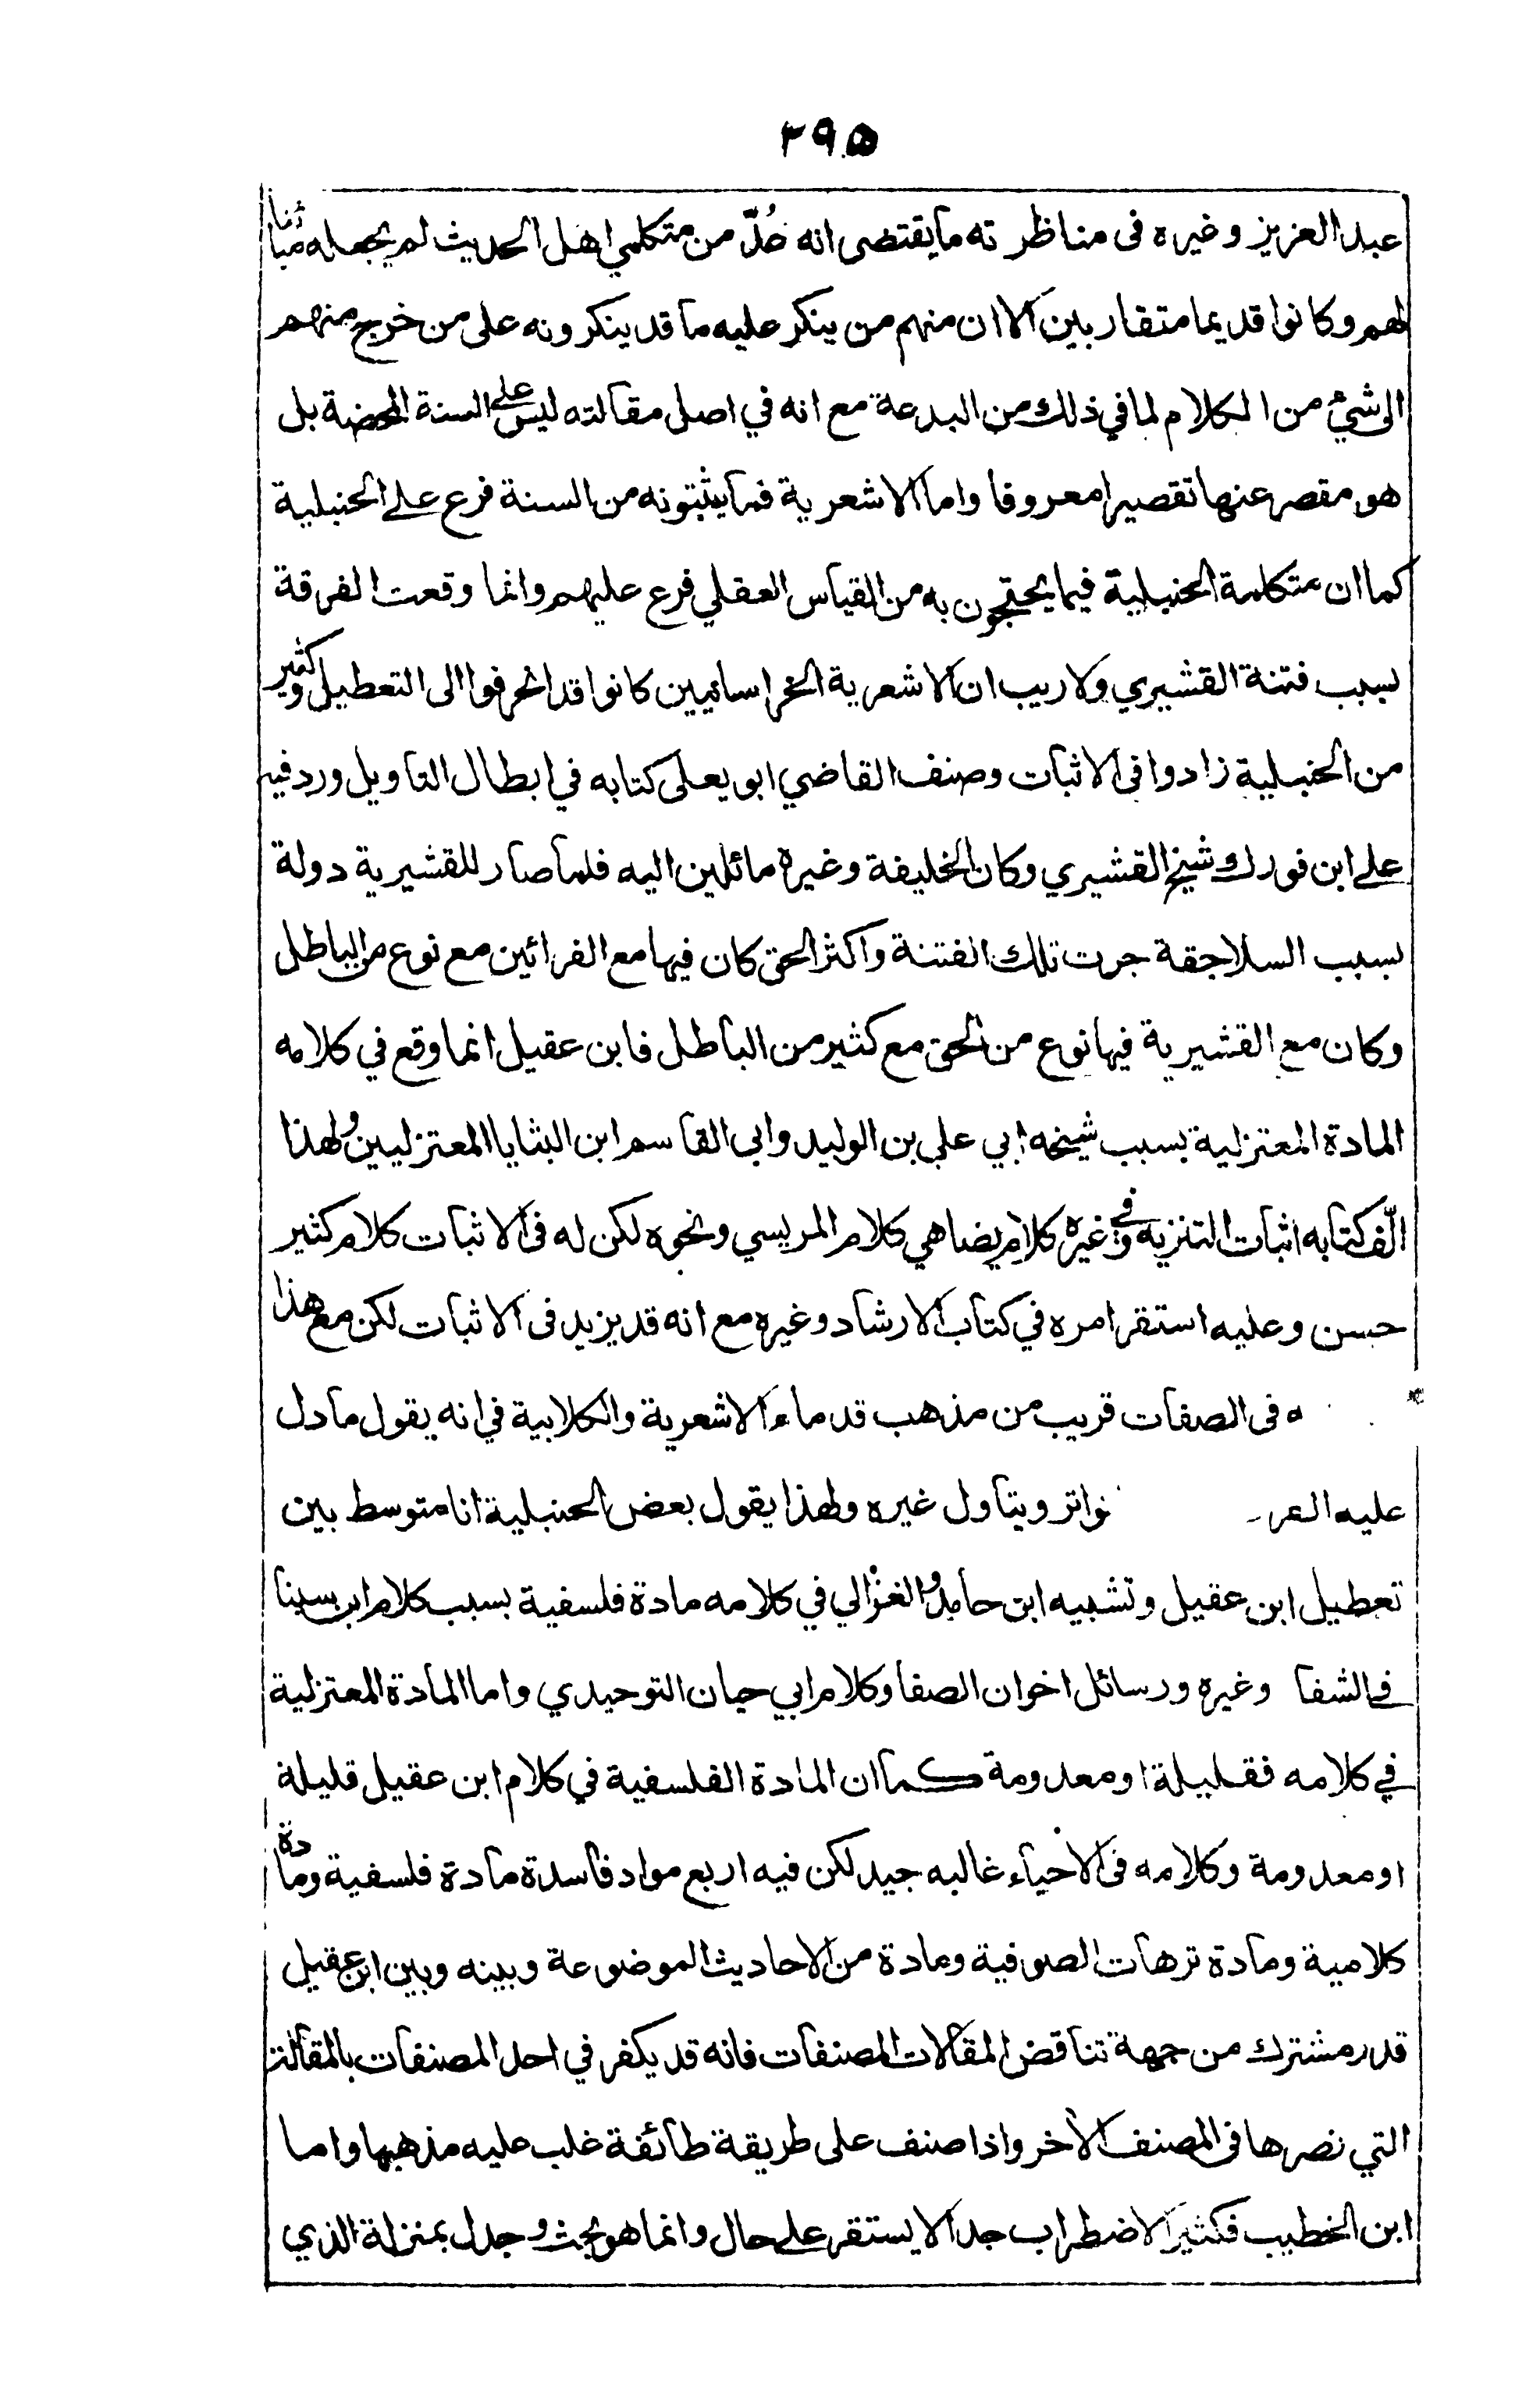 ٣٩٥
عبد العزيز وغيره فى مناظرته ما يقتضى انه عُدّ من متكلمي اهل الحديث لم يجعله مباينا
لهم وكانوا قديما متقاربين الا ان منهم من ينكر عليه ما قد ينكرونه على من خرج منهم
الى شيء من الكلام لما في ذلك من البدعة مع انه في اصل مقالته ليس على السنة المحضة بل
هو مقصر عنها تقصيرا معروفا واما الاشعرية فما يثبتونه من السنة فرع على الحنبلية
كما ان متكلمة الحنبلية فيما يحتجون به من القياس العقلي فرع عليهم وانما وقعت الفرقة
بسبب فتنة القشيري ولاريب ان الاشعرية الخراسانيين كانوا قد انحرفوا الى التعطيل وكثير
من الحنبلية زادوا فى الاثبات وصنف القاضي ابو يعلى كتابه في ابطال التاويل ورد فيه
على ابن فورك شيخ القشيري وكان الخليفة وغيره مائلين اليه فلما صار للقشيرية دولة
بسبب السلاجقة جرت تلك الفتنة واكثر الحق كان فيها مع الفرائين مع نوع من الباطل
وكان مع القشيرية فيها نوع من الحق مع كثير من الباطل فابن عقيل انما وقع في كلامه
المادة المعتزلية بسبب شيخه ابي علي بن الوليد وابى القاسم ابن البثايا المعتزليين ولهذا
الّف كتابه اثبات التنزيه وفي غيره كلام يضاهي كلام المريسي ونحوه لكن له فى الاثبات كلام كثير
حسن وعليه استقر امره في كتاب الارشاد وغيره مع انه قد يزيد فى الاثبات لكن مع هذا
ه فى الصفات قريب من مذهب قدماء الاشعرية والكلابية في انه يقول ما دل
عليه العر نواتر ويتاول غيره ولهذا يقول بعض الحنبلية انا متوسط بين
تعطيل ابن عقيل وتشبيه ابن حامد والغزالي في كلامه مادة فلسفية بسبب كلام ابن سينا
في الشفا وغيره ورسائل اخوان الصفا وكلام ابي حيان التوحيدي واما المادة المعتزلية
في كلامه فقليلة او معدومة كما ان المادة الفلسفية في كلام ابن عقيل قليلة
او معدومة وكلامه فى الاحياء غالبه جيد لكن فيه اربع مواد فاسدة مادة فلسفية ومادة
كلامية ومادة ترهات الصوفية ومادة من الاحاديث الموضوعة وبينه وبين ابن عقيل
قدر مشترك من جهة تناقض المقالات المصنفات فانه قد يكفر في احد المصنفات بالمقالة
التي نصرها فى المصنف الاخر واذا صنف على طريقة طائفة غلب عليه مذهبها واما
ابن الخطيب فكثير الاضطراب جدا لا يستقر على حال وانما هو بحث وجدل بمنزلة الذي